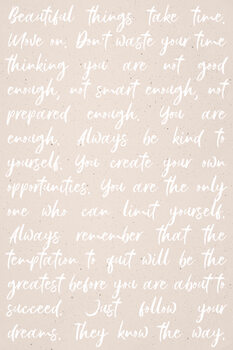 Beautiful things take time.
Move on. Don't waste your time
thinking you are not good
enough, not smart enough, not
prepared enough. You are
enough. Always be kind to
yourself. You create your own
opportunities. You are the only
one who can limit yourself.
Always remember that the
temptation to quit will be the
greatest before you are about to
succeed. Just follow your
dreams. They know the way.